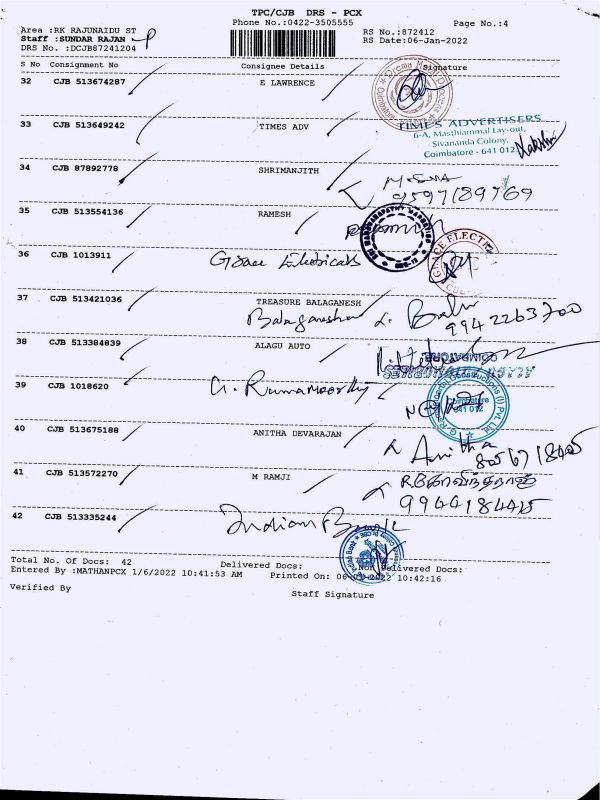 TPC/CJB DRS - PCX
Phone No.:0422-3505555 Page No.:4
Area :RK RAJUNAIDU ST RS No.:872412
Staff :SUNDAR RAJAN RS Date:06-Jan-2022
DRS No. :DCJB87241204
S No Consignment No Consignee Details Signature
32 CJB 513674287 E LAWRENCE
33 CJB 513649242 TIMES ADV
TIMES ADVERTISERS
6-A, Masthiammal Lay-out,
Sivananda Colony,
Coimbatore - 641 012
34 CJB 87892778 SHRIMANJITH
9597189769
35 CJB 513554136 RAMESH
36 CJB 1013911 Grace Electricals
GRACE ELECTRI
37 CJB 513421036 TREASURE BALAGANESH
Balaganeshan L. Balu
9942263700
38 CJB 513384839 ALAGU AUTO
COIMBATORE
39 CJB 1018620 G. Ramamoorthy
Coimbatore
641 012
40 CJB 513675188 ANITHA DEVARAJAN
Anitha
41 CJB 513572270 M RAMJI
R.கோவிந்தராஜ்
42 CJB 513335244 Indian Bank
Total No. Of Docs: 42 Delivered Docs: Non Delivered Docs:
Entered By :MATHANPCX 1/6/2022 10:41:53 AM Printed On: 06-01-2022 10:42:16
Verified By Staff Signature